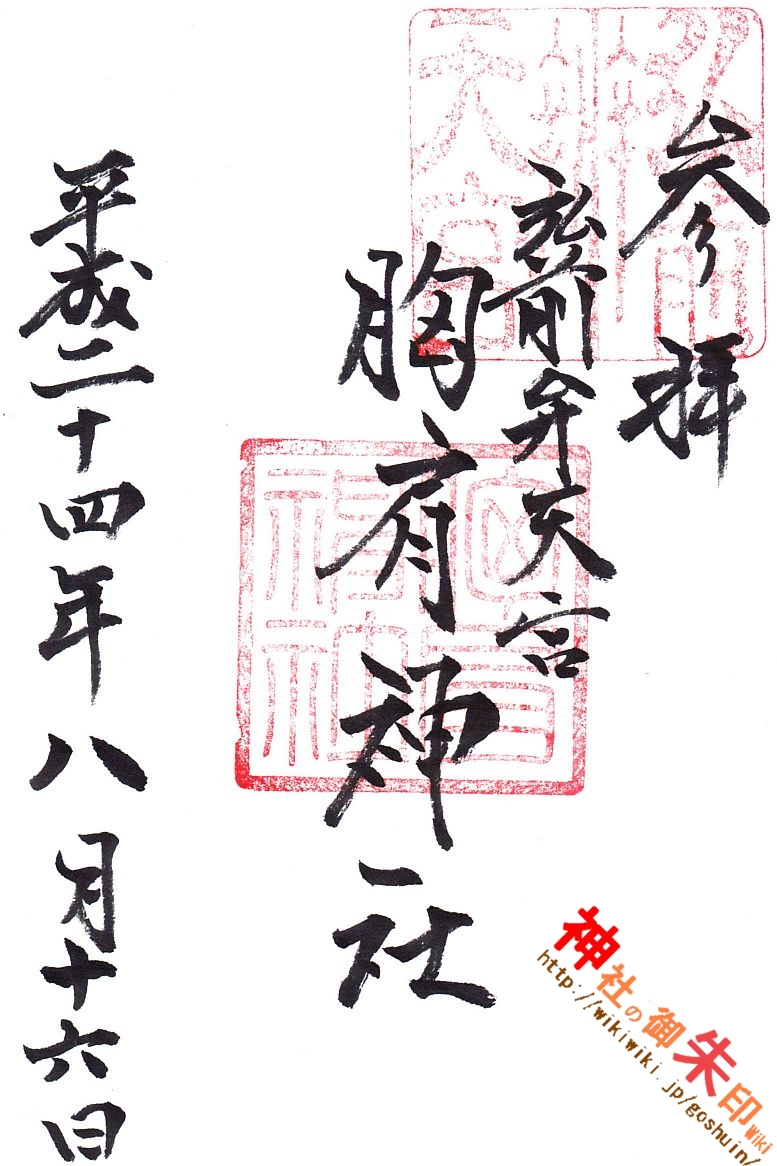 参拝
弘前弁天宮
胸肩神社
平成二十四年八月十六日
弘前
辨
天宮
神社の御朱印Wiki
http://wikiwiki.jp/goshuin/